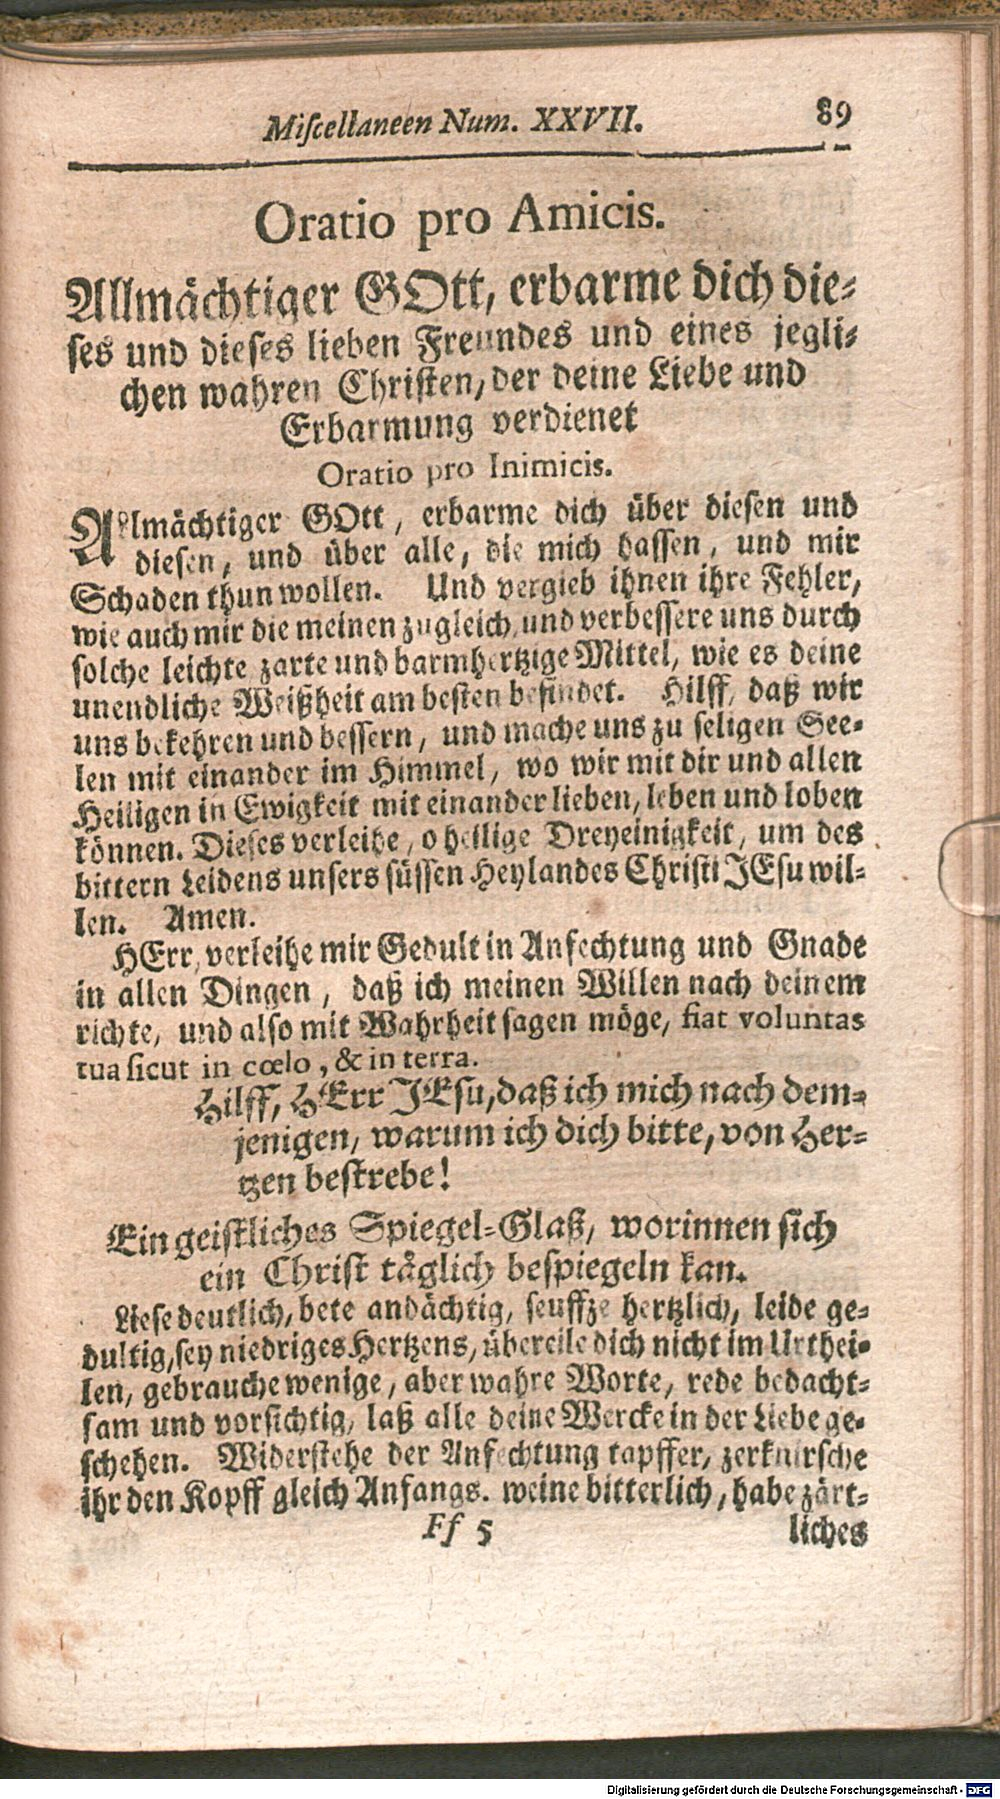 Miscellaneen Num. XXVII. 89
Oratio pro Amicis.
Allmächtiger GOtt, erbarme dich die-
ses und dieses lieben Freundes und eines jegli-
chen wahren Christen, der deine Liebe und
Erbarmung verdienet
Oratio pro Inimicis.
Allmächtiger GOtt, erbarme dich über diesen und
diesen, und über alle, die mich hassen, und mir
Schaden thun wollen. Und vergieb ihnen ihre Fehler,
wie auch mir die meinen zugleich, und verbessere uns durch
solche leichte zarte und barmhertzige Mittel, wie es deine
unendliche Weißheit am besten befindet. Hilff, daß wir
uns bekehren und bessern, und mache uns zu seligen See-
len mit einander im Himmel, wo wir mit dir und allen
Heiligen in Ewigkeit mit einander lieben, leben und loben
können. Dieses verleihe, o heilige Dreyeinigkeit, um des
bittern Leidens unsers süssen Heylandes Christi JEsu wil-
len. Amen.
HErr, verleihe mir Gedult in Anfechtung und Gnade
in allen Dingen, daß ich meinen Willen nach deinem
richte, und also mit Wahrheit sagen möge, fiat voluntas
tua sicut in cœlo, & in terra.
Hilff, HErr JEsu, daß ich mich nach dem-
jenigen, warum ich dich bitte, von Her-
tzen bestrebe!
Ein geistliches Spiegel-Glaß, worinnen sich
ein Christ täglich bespiegeln kan.
Liese deutlich, bete andächtig, seuffze hertzlich, leide ge-
dultig, sey niedriges Hertzens, übereile dich nicht im Urthei-
len, gebrauche wenige, aber wahre Worte, rede bedacht-
sam und vorsichtig, laß alle deine Wercke in der Liebe ge-
schehen. Widerstehe der Anfechtung tapffer, zerknirsche
ihr den Kopff gleich Anfangs. weine bitterlich, habe zärt-
Ff 5 liches
Digitalisierung gefördert durch die Deutsche Forschungsgemeinschaft - DFG